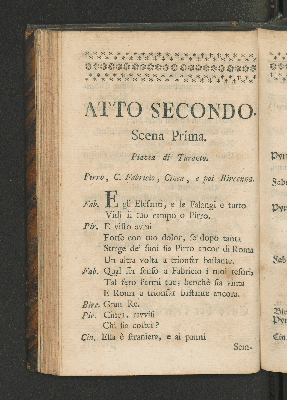 ATTO SECONDO.
Scena Prima.
Piazza di Taranto.
Pirro, C. Fabricio, Cinea, e poi Bircenna.
Fab. E gli Elefanti, e le Falangi e tutto
Vidi il tuo campo o Pirro.
Pir. E visto avrai
Forse con tuo dolor, se dopo tanta
Strage de' suoi sia Pirro ancor di Roma
Un altra volta a trionfar bastante.
Fab. Qual fer senso a Fabricio i tuoi tesori,
Tal fero l'armi tue; benchè sia vinta
E Roma a trionfar bastante ancora.
Birc. Gran Re.
Pir. Cinea, ravvisi
Chi sia costei?
Cin. Ella è straniera, e ai panni
Sem-
Pyr
Fab
Pyr